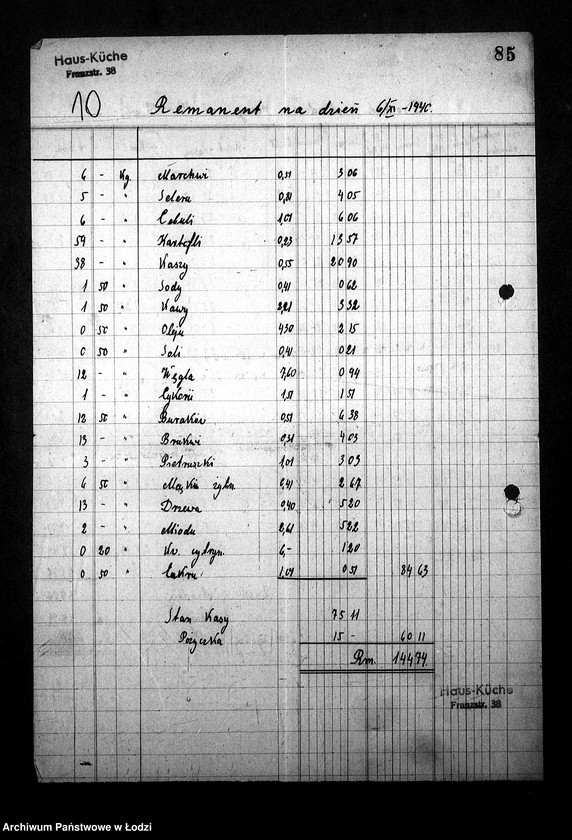 Haus-Küche
Franzstr. 38
85
10 Remanent na dzień 6/XI-1940.
6 - Kg. Marchwi 0,51 3 06
5 - " Selera 0,81 4 05
6 - " Cebuli 1,01 6 06
59 - " Kartofli 0,23 13 57
38 - " Kaszy 0,55 20 90
1 50 " Sody 0,41 0 62
1 50 " Kawy 2,21 3 32
0 50 " Oleju 4,30 2 15
0 50 " Soli 0,41 0 21
12 - " Węgla 7,60 0 94
1 - " Cykorii 1,51 1 51
12 50 " Buraków 0,51 6 38
13 - " Brukwi 0,31 4 03
3 - " Pietruszki 1,01 3 03
6 50 " Mąki żytn. 0,41 2 67
13 - " Drzewa 0,40 5 20
2 - " Miodu 2,61 5 22
0 20 " Kw. cytryn. 6,- 1 20
0 50 " Cukru 1,01 0 51 84 63
Stan Kasy 75 11
Pożyczka 15 - 60 11
Rm. 144 74
Haus-Küche
Franzstr. 38
Archiwum Państwowe w Łodzi